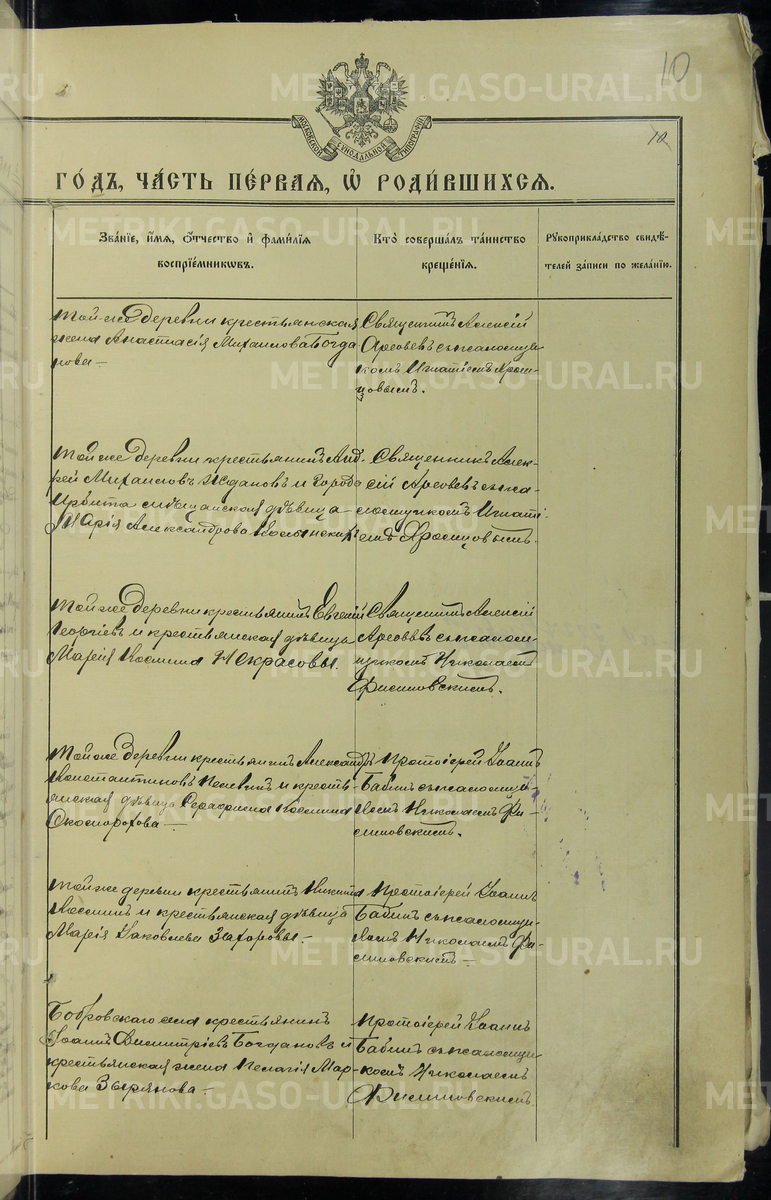 10
10
МОСКОВСКОЙ СѴНОДАЛЬНОЙ ТИПОГРАФІИ
ГО́ДЪ, ЧА́СТЬ ПЕ́РВАЯ, Ѡ҆ РОДИ́ВШИХСЯ.
Зва́нїе, и҆́мя, ѻ҆́тчество и҆ фами́лїя
воспрїе́мниковъ.
Кто̀ соверша́лъ та́инство
креще́нїя.
Рукоприкла́дство свидѣ́-
телей за́писи по жела́нїю.
Той-же деревни крестьянская
жена Анастасія Михаилова Богда
нова —
Священникъ Алексій
Арефьевъ съ псаломщи
комъ Игнатіемъ
Той же деревни крестьянинъ Анд-
рей Михаиловъ Ждановъ и города
Ирбита мѣщанская дѣвица
Марія Александрова
Священникъ Алек-
сій Арефьевъ съ пса-
ломщикомъ Игнаті-
емъ
Той же деревни крестьянинъ Евгеній
Георгіевъ и крестьянская дѣвица
Марія Космина Некрасовы.
Священникъ Алексій
Арефьевъ съ псалом-
щикомъ Николаемъ
Филиповскимъ.
Той же деревни крестьянинъ Александръ
Константиновъ и кресть-
янская дѣвица Серафима Космина
Скоморохова —
Протоіерей Іоаннъ
Бабинъ съ псаломщи
комъ Николаемъ Фи-
липовскимъ.
Той же деревни крестьянинъ Никита
Косминъ и крестьянская дѣвица
Марія Іаковлева Захаровы. —
Протоіерей Іоаннъ
Бабинъ съ псаломщи-
комъ Николаемъ Фи-
липовскимъ —
Бобровскаго села крестьянинъ
Іоаннъ Димитріевъ Богдановъ и
крестьянская жена Пелагія Мар-
кова Зырянова —
Протоіерей Іоаннъ
Бабинъ съ псаломщи-
комъ Николаемъ
Филиповскимъ.
METRIKI.GASO-URAL.RU